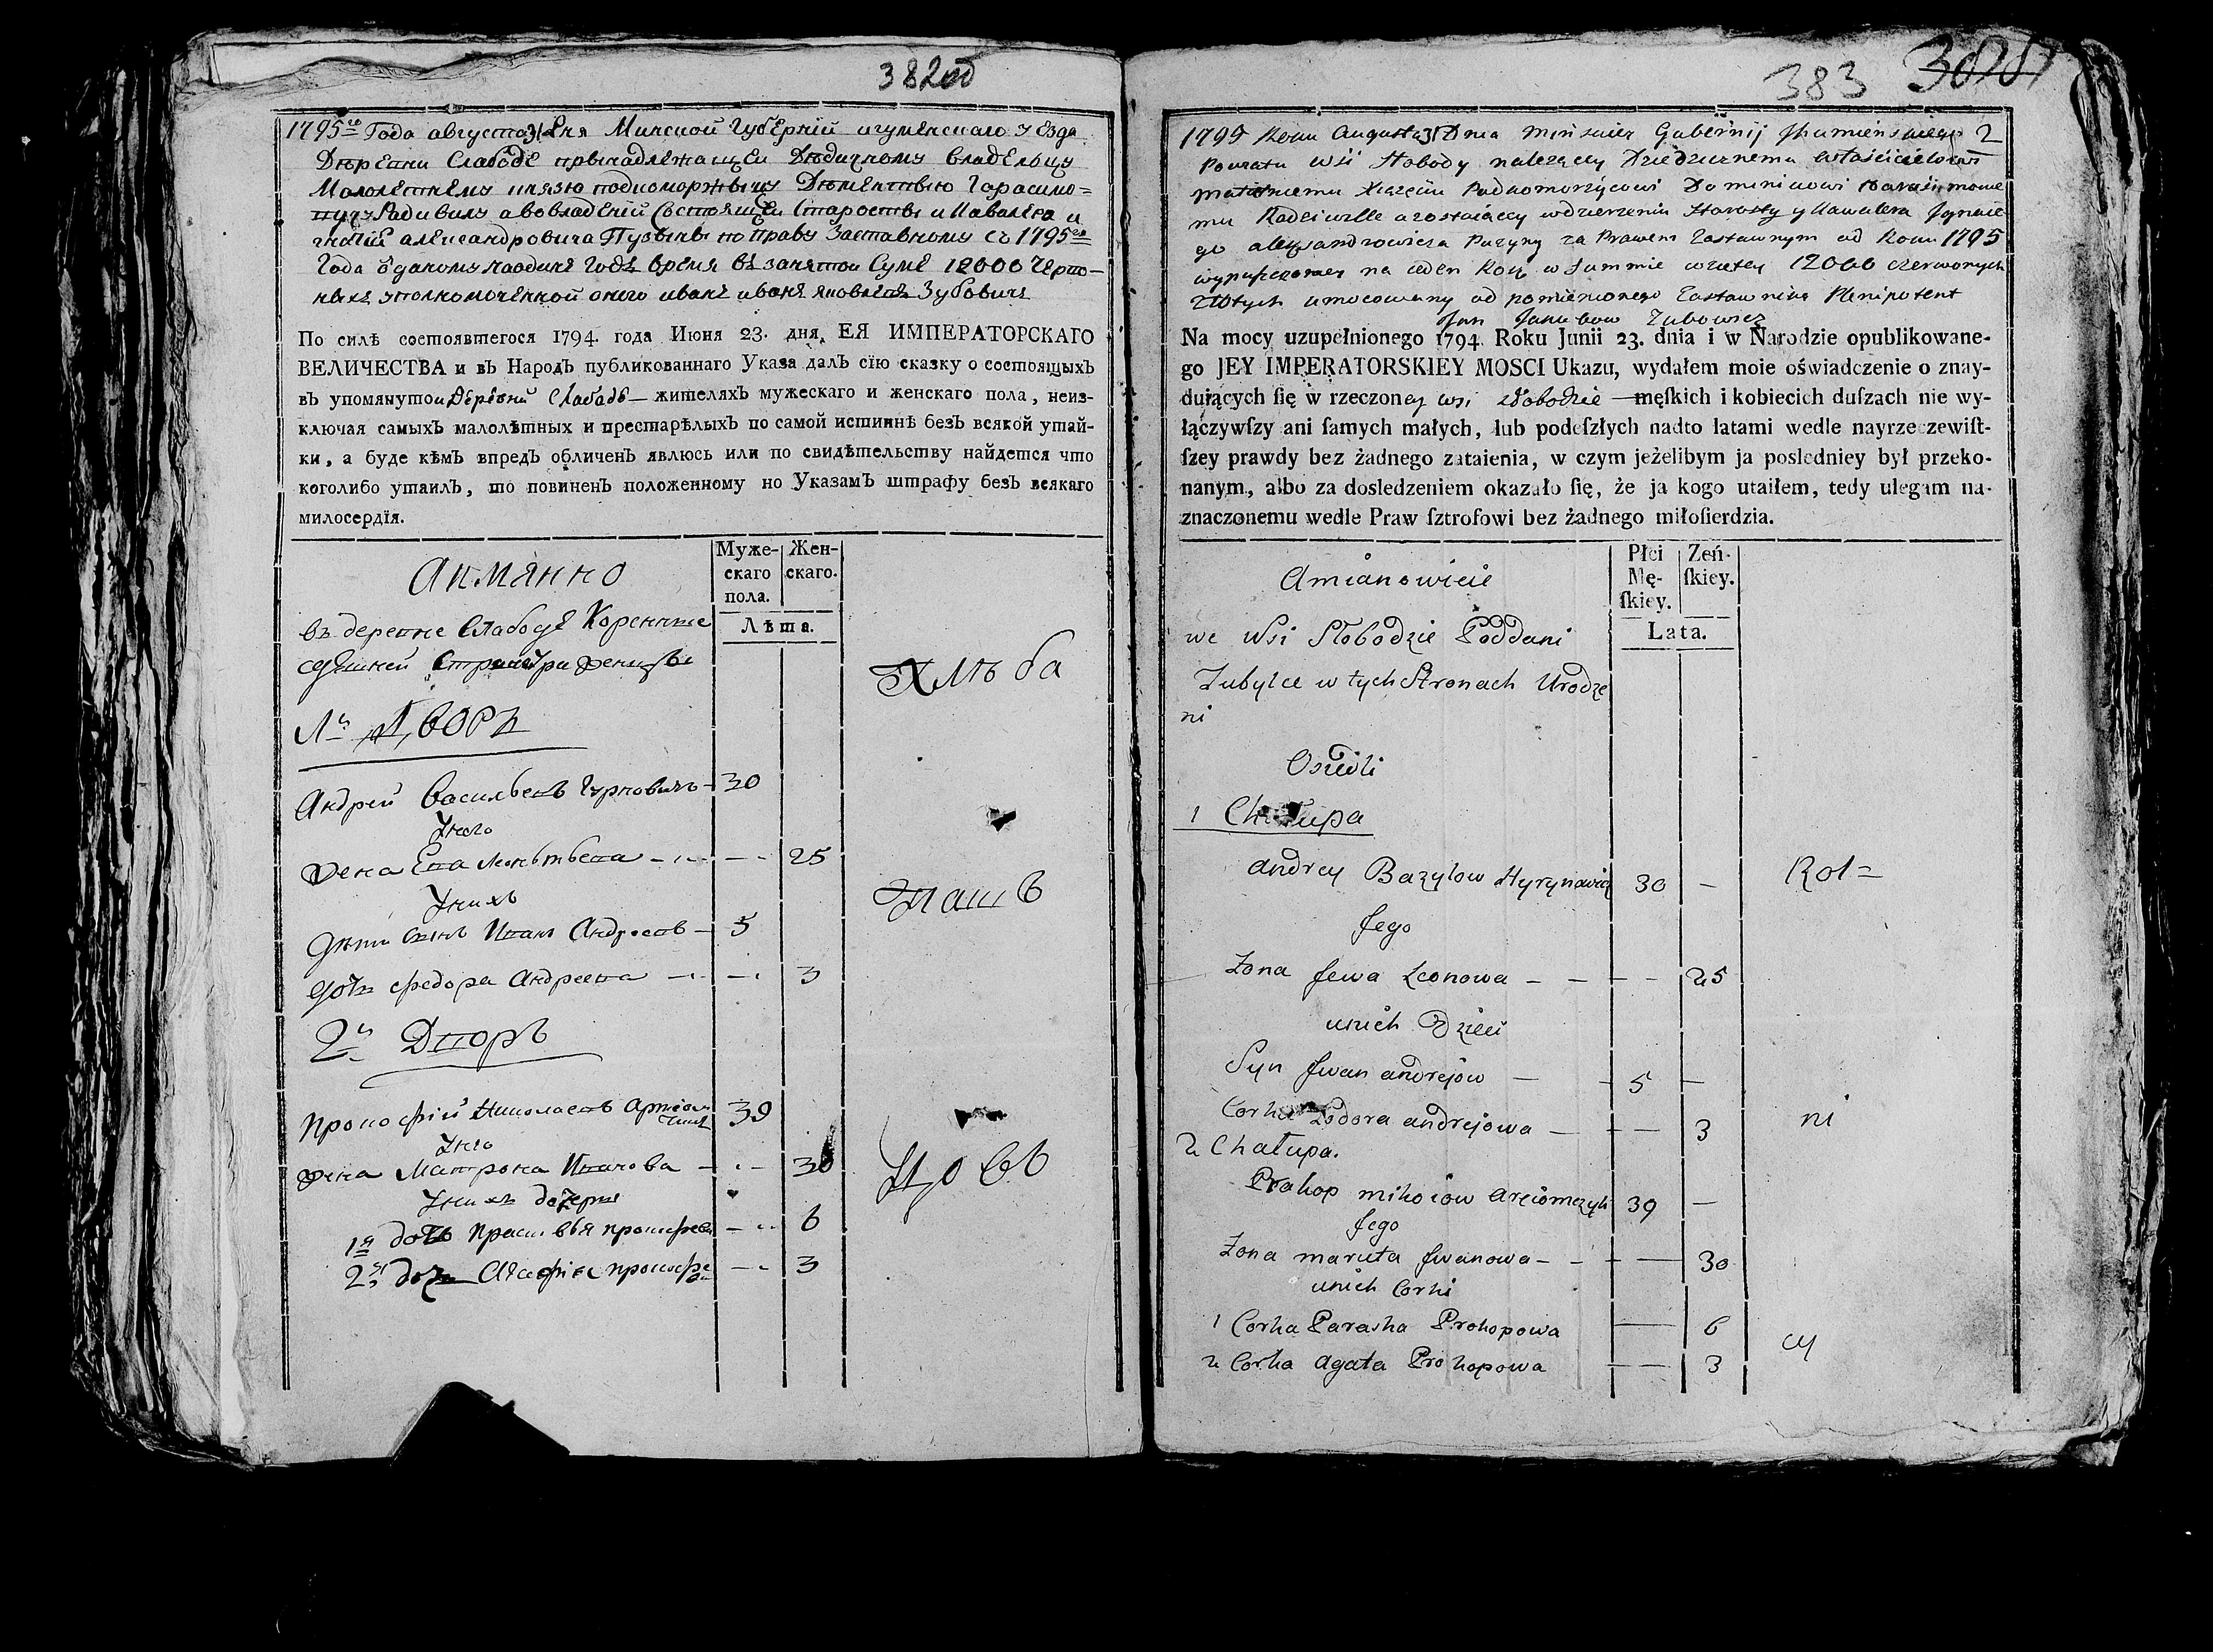 382об
1795го Года августа 31 Дня Минской Губернiи игуменскаго уезда
Деревни Слабоде принадлежащеи Дедичному владельцу
Малолетнему князю подкоморжичу Доментию Гарасимо=
вичу Радивилу авовладенiи Состоящеи Старосты и Кавалера и
гнатiя александровича Пузыны по праву Заставному съ 1795го
Года одному наодинъ Годъ время въ занятои Суме 12000 Черво-
ныхъ уполномоченной онего иванъ Яковлевъ Зубовичъ
По силѣ состоявшегося 1794. года Июня 23. дня, ЕЯ ИМПЕРАТОРСКАГО
ВЕЛИЧЕСТВА и въ Народъ публикованнаго Указа далъ сïю сказку о состоящыхъ
въ упомянутои Деревни Слабадѣ — жителяхъ мужескаго и женскаго пола, неиз-
ключая самыхъ малолѣтных и престарѣлыхъ по самой истиннѣ безъ всякой утай-
ки, а буде кѣмъ впредъ обличенъ явлюсь или по свидѣтельству найдется что
коголибо утаилъ, то повиненъ положенному по Указамъ штрафу безъ всякаго
милосердïя.
Аимянно
Муже-
скаго
пола.
Жен-
скаго.
Лѣта.
въ деревне Слабодѣ Коренные
1й Дворъ
Андрей Васильевъ Гурновичъ - 30
Унего
жена Ева Леонтьева - - - 25
Унихъ
дѣти сынъ Иванъ Андреевъ - 5
дочь федора Андреева - - 3
2й Дворъ
Прокофiй Николаевъ Артiом
чикъ 39
Унего
жена Матрона Иванова - - 30
Унихъ дочери
1я дочь Прасковья прокофьева - - 6
2я дочь Агафiя прокофье
ва - - 3
Хлѣба
пашъ
цовъ
383
1795 Roku Augusta 31 Dnia Minskiey Gubernij Jhumienskiego 2
Powiatu Wsi Słobody nalezącey Dziedzicznemu własċicielowi
małoletniemu Xiązęciu Podkomorzycowi Dominikowi Harasimowe
mu Radziwille a zostaiącey wdzierzeniu Starosty y Kawalera Jgnace
go alexandrowicza Puzyny za Prawem Zastawnym od Roku 1795
wypuszczoney na ieden Rok w Summie wziętey 12000 czerwonych
Złotych umocowany od pomienionego Zastawnika Plenipotent
Jan Jakubow Zubowicz
Na mocy uzupełnionego 1794 Roku Junii 23. dnia i w Narodzie opublikowane-
go JEY IMPERATORSKIEY MOSCI Ukazu, wydałem moie oświadczenie o znay-
duiących ſię w rzeczoney wsi Słobodzie —męſkich i kobiecich duſzach nie wy-
łączywſzy ani ſamych małych, lub podeſzłych nadto latami wedle nayrzeczewiſt-
ſzey prawdy bez żadnego zataienia, w czym jeżelibym ja posledniey był przeko-
nanym, albo za dosledzeniem okazało ſię, że ja kogo utaiłem, tedy ulegam na-
znaczonemu wedle Praw ſztrofowi bez żadnego miłoſierdzia.
Amianowicie
Płci
Mę-
ſkiey.
Zeń-
ſkiey.
Lata.
we Wsi Słobodzie Poddani
Zubylce w tych Stronach Urodze
ni
Osiedli
1 Chałupa
Andrey Bazylow Hyrynowicz 30 —
Jego
Zona Jewa Leonowa - - - - 25
unich Dzieci
Syn Jwan andrejow — - 5 —
Corka Todora andrejowa — - — 3
2 Chałupa.
Prakop mikołow Arciomczyk 39 —
Jego
Zona maruta Jwanowa - - - — 30
unich Corki
1 Corka Paraska Prokopowa — 6
2 Corka Agata Prokopowa - — 3
Rol=
ni
cy